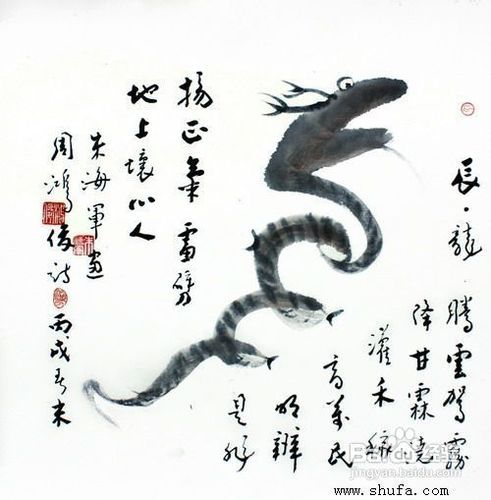 辰·龍
騰雲駕霧
降甘霖澆
灌禾
萬民
明辨
是非
揚正氣 雷劈
地上壞心人
朱海軍畫
周鴻俊詩
丙戌春末
Baidu 经验
jingyan.baidu.com
www.shufa.com